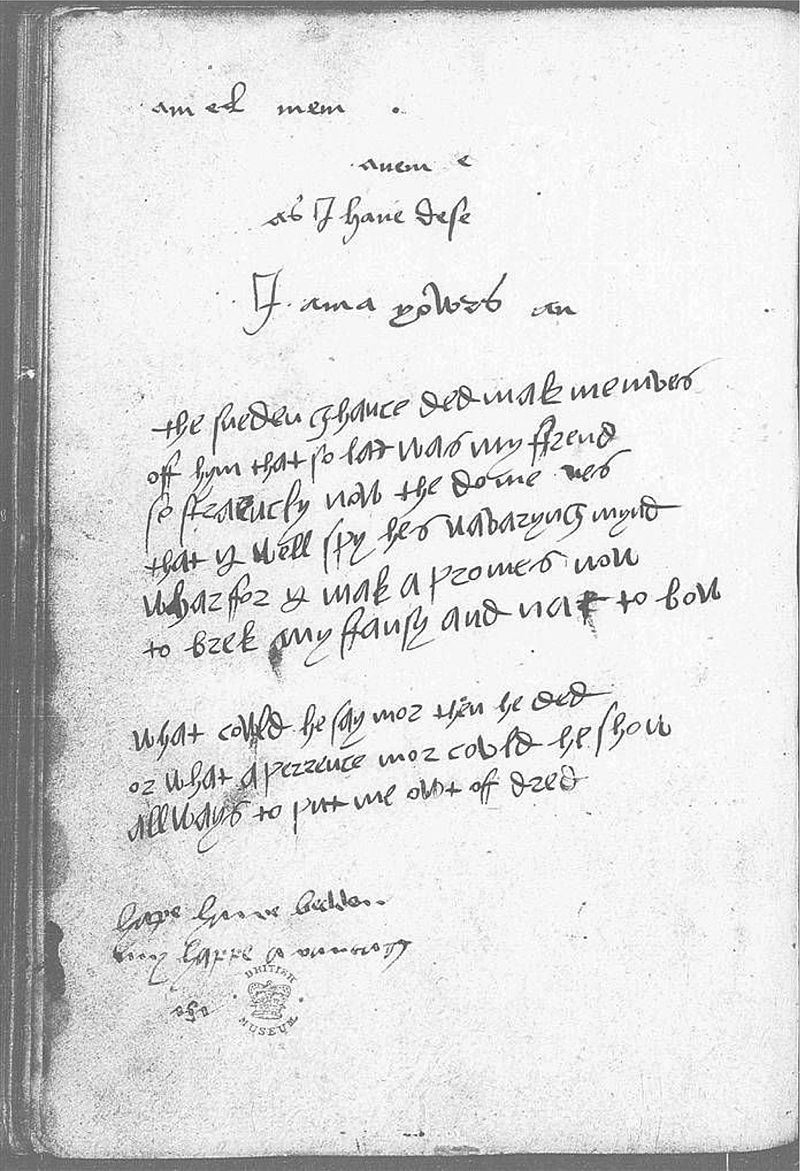 am el mem
anem e
as I haue dese
I ama yowrs an
the sueden ghance ded mak me mves
off hym that so lat was my ffrend
so straenely now the do me ues
that I well spy hes vavaryng mynd
wharfor I mak a promes now
to brek my ffansy and nat to bow
what cowld he say mor then he ded
or what aperrence mor cowld he show
allways to put me owt of dred
hape hawe bedden
my happe a vanyng
BRITISH MUSEUM